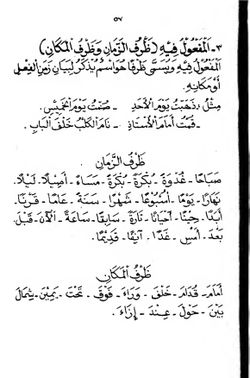 ٥٧
٣- المَفْعُولُ فِيهِ (ظَرْفُ الزَّمَانِ وَظَرْفُ المَكَانِ)
المَفْعُولُ فِيهِ وَيُسَمَّى ظَرْفًا هُوَ اسْمٌ يُذْكَرُ لِبَيَانِ زَمَنِ الفِعْلِ
أَوْ مَكَانِهِ.
مِثْلُ: ذَهَبْتُ يَوْمَ الأَحَدِ - صُمْتُ يَوْمَ الخَمِيسِ.
- قُمْتُ أَمَامَ الأُسْتَاذِ - نَامَ الكَلْبُ خَلْفَ البَابِ.
ظَرْفُ الزَّمَانِ
صَبَاحًا - غَدْوَةً - بُكْرَةً - مَسَاءً - أَصِيلًا - لَيْلًا -
نَهَارًا - يَوْمًا - أُسْبُوعًا - شَهْرًا - سَنَةً - عَامًا - قَرْنًا -
أَبَدًا - حِينًا - أَحْيَانًا - تَارَةً - سَابِقًا - سَاعَةً - الآنَ - قَبْلَ
بَعْدَ - أَمْسِ - غَدًا - آنِفًا - قَدِيمًا.
ظَرْفُ المَكَانِ
أَمَامَ - قُدَّامَ - خَلْفَ - وَرَاءَ - فَوْقَ - تَحْتَ - يَمِينَ - شِمَالَ
بَيْنَ - حَوْلَ - عِنْدَ - إِزَاءَ.